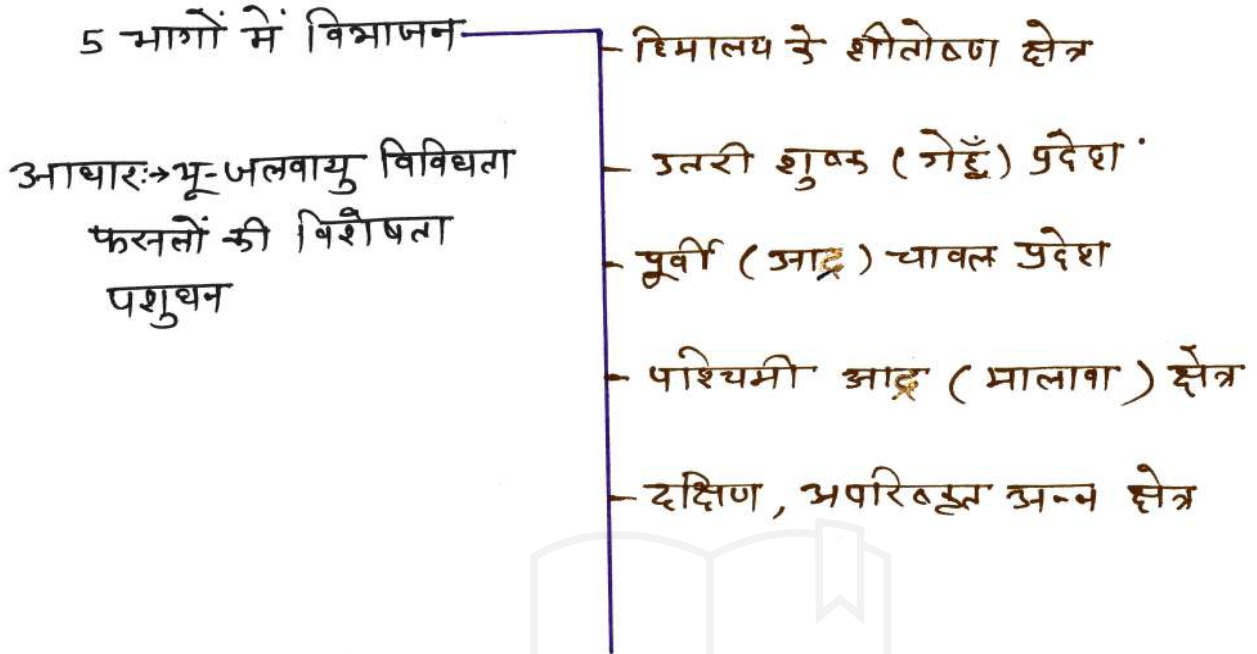 5 भागों में विभाजन
आधारः→भू-जलवायु विविधता
फसलों की विशेषता
पशुधन
- हिमालय के शीतोष्ण क्षेत्र
- उतरी शुष्क (गेहूँ) प्रदेश
- पूर्वी (आद्र) चावल प्रदेश
- पश्चिमी आद्र (मालावा) क्षेत्र
- दक्षिण, अपरिष्कृत अन्न क्षेत्र